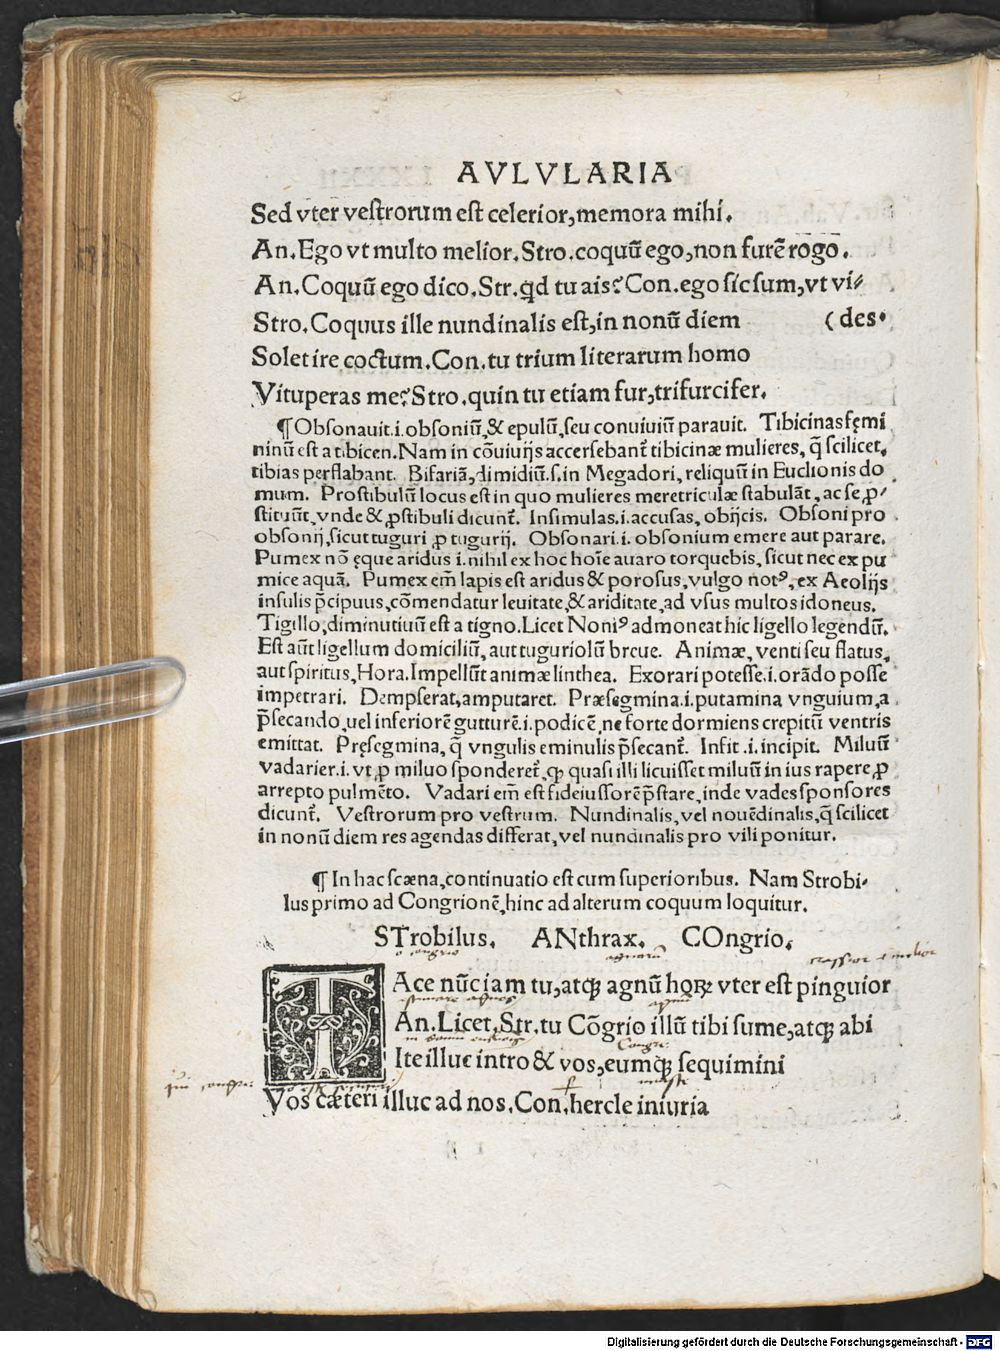 AVLVLARIA
Sed vter vestrorum est celerior, memora mihi.
An. Ego vt multo melior. Stro. coquū ego, non furē rogo.
An. Coquū ego dico. Str. qd tu ais? Con. ego sic sum, vt vi-
Stro. Coquus ille nundinalis est, in nonū diem (des.
Solet ire coctum. Con. tu trium literarum homo
Vituperas me? Stro. quin tu etiam fur, trifurcifer.
¶ Obsonauit .i. obsoniū, & epulū, seu conuiuiū parauit. Tibicinas fęmi
ninū est a tibicen. Nam in cōuiuijs accersebant̄ tibicinæ mulieres, q̄ scilicet,
tibias perflabant. Bifariā, dimidiū .s. in Megadori, reliquū in Euclionis do
mum. Prostibulū locus est in quo mulieres meretriculæ stabulāt, ac se ꝓ-
stituūt, vnde & ꝓstibuli dicunt̄. Insimulas .i. accusas, obijcis. Obsoni pro
obsonij, sicut tuguri ꝓ tugurij. Obsonari .i. obsonium emere aut parare.
Pumex nō ęque aridus .i. nihil ex hoc hoīe auaro torquebis, sicut nec ex pu
mice aquā. Pumex em̄ lapis est aridus & porosus, vulgo notꝰ, ex Aeolijs
insulis p̄cipuus, cōmendatur leuitate, & ariditate, ad vsus multos idoneus.
Tigillo, diminutiuū est a tigno. Licet Noniꝰ admoneat hic ligello legendū.
Est aūt ligellum domiciliū, aut tuguriolū breue. Animæ, venti seu flatus,
aut spiritus, Hora. Impellūt animæ linthea. Exorari potesse .i. orādo posse
impetrari. Dempserat, amputaret. Præsegmina .i. putamina vnguium, a
p̄secando, uel inferiorē gutturē .i. podicē, ne forte dormiens crepitū ventris
emittat. Pręsegmina, q̄ vngulis eminulis p̄secant̄. Infit .i. incipit. Miluū
vadarier .i. vt ꝓ miluo sponderet̄, qꝫ quasi illi licuisset miluū in ius rapere ꝓ
arrepto pulmēto. Vadari em̄ est fideiussorē p̄stare, inde vades sponsores
dicunt̄. Vestrorum pro vestrum. Nundinalis, vel nouēdinalis, q̄ scilicet
in nonū diem res agendas differat, vel nundinalis pro vili ponitur.
¶ In hac scæna, continuatio est cum superioribus. Nam Strobi-
lus primo ad Congrionē, hinc ad alterum coquum loquitur.
STrobilus. ANthrax. COngrio.
o congrio
TAce nūc iam tu, atqꝫ agnū hoꝝ vter est pinguior
An. Licet, Str. tu Cōgrio illū tibi sume, atqꝫ abi
Ite illuc intro & vos, eumqꝫ sequimini
Vos cæteri illuc ad nos. Con. hercle iniuria
Digitalisierung gefördert durch die Deutsche Forschungsgemeinschaft - DFG